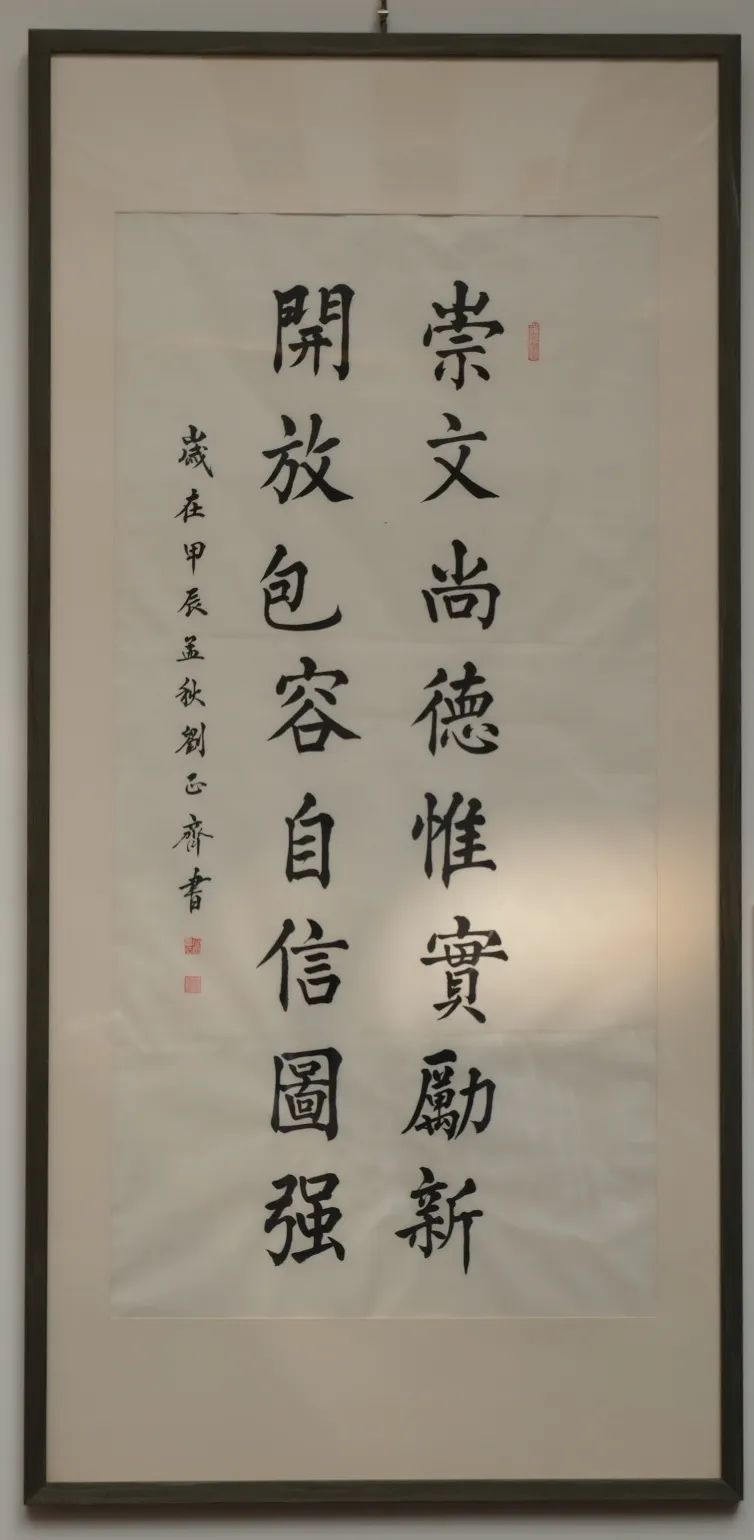 崇文尚德惟實勵新
開放包容自信圖强
歲在甲辰孟秋劉正齊書